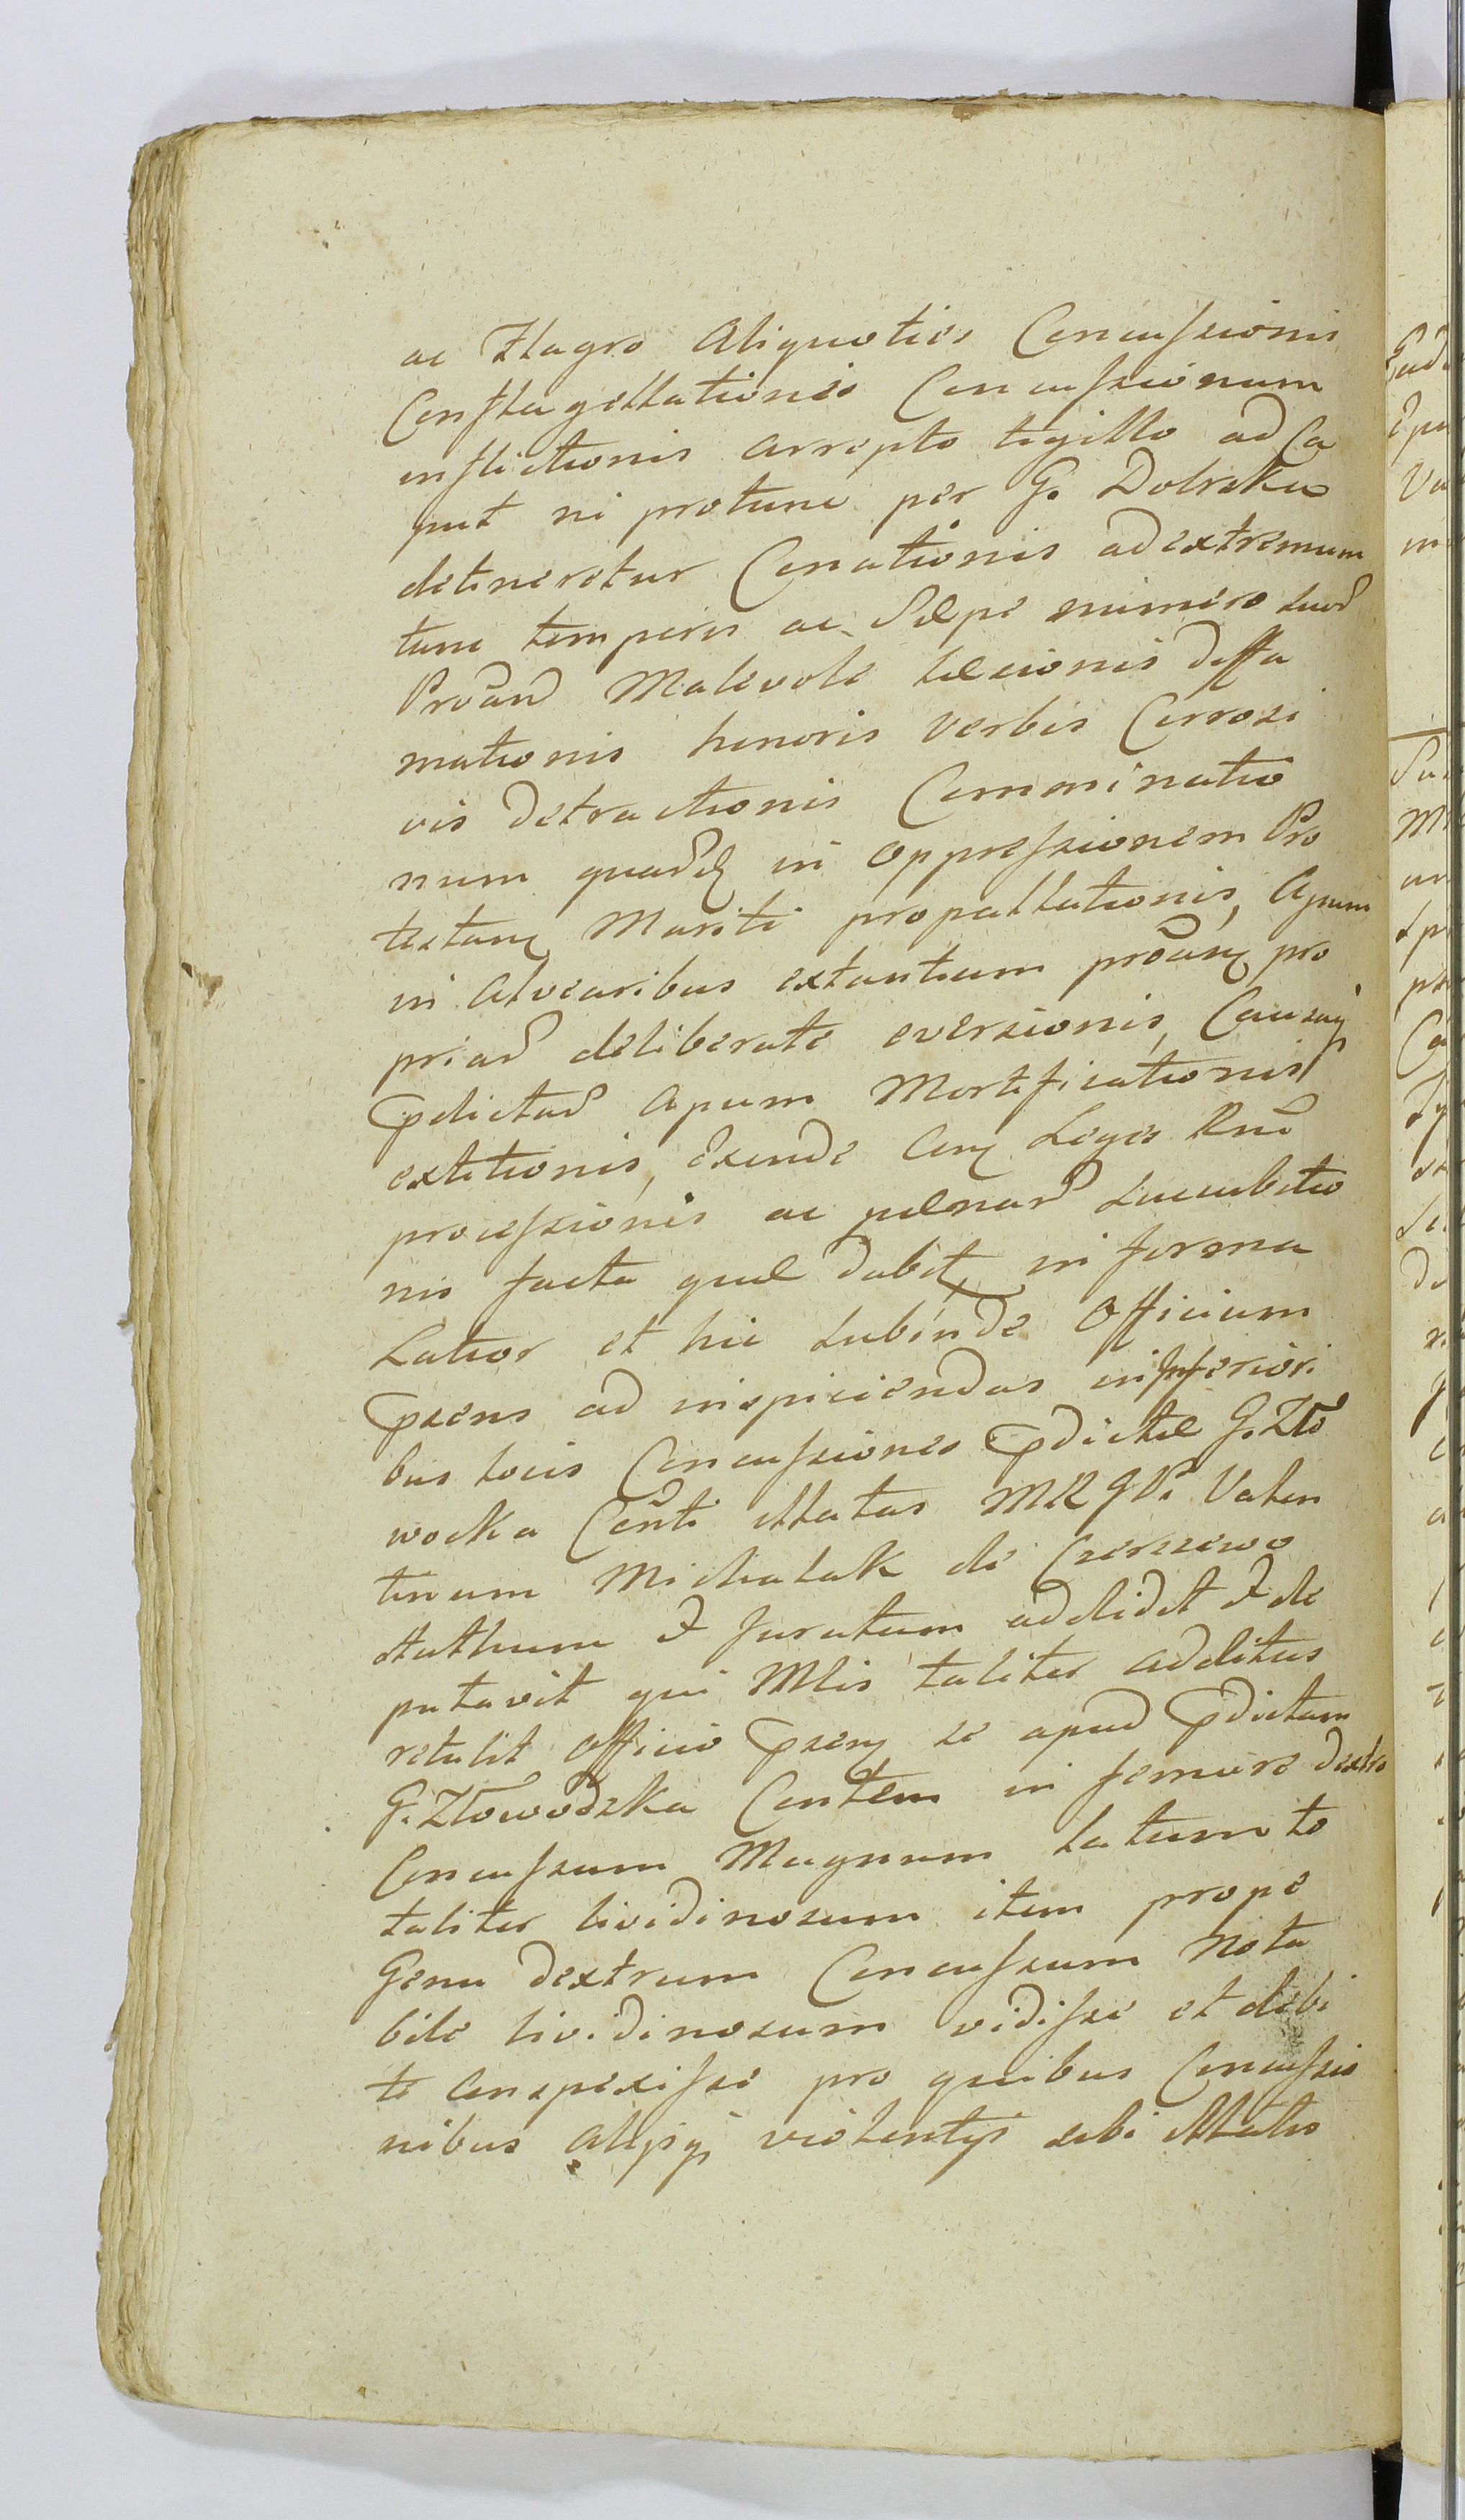 ac Flagro Aliquoties Concussionis
Conflagellationis Concussionum
inflictionis arrepto tigillo ad Ca
put ni protunc per G. Dobrska
detineretur Conationis ad extremum
tunc temporis ac Sæpe numero suor̃
Proãnd Malevole læsionis diffa
mationis honoris verbis Corrosi
vis detractionis Comminatio
num quar̃dꝫ in oppressionem Pro
testanꝫ Mariti propallationis, Apum
in Alvearibus extantium prõanꝫ pro
priar̃ deliberate eversionis, Causaqꝫ
p̃dictar̃ Apum Mortificationis
extitionis, exinde Conꝫ Leges Rnĩ
processionis ac pænar̃ succubitio
nis facta quæ dabitꝫ in forma
Latior et hic subinde Officium
p̃sens ad inspiciendas inferiori
bus locis Concussiones p̃dictæ G. Zło
wocka Cõnti illatas MRGD. Valen
tinum Michalak de Czerzewo
Authum & Juratum addidit & de
putavit qui Mlis taliter additus
retulit officio p̃senꝫ se apud p̃dictam
G. Złowodzka Contem in femore dextro
Concussum Magnum latum to
taliter lividinosum item prope
Genu dextrum Concussum Nota
bile lividinosum vidisse et debi
te Conspexisse pro quibus Concussio
nibus alysqꝫ violentijs sibi illatis